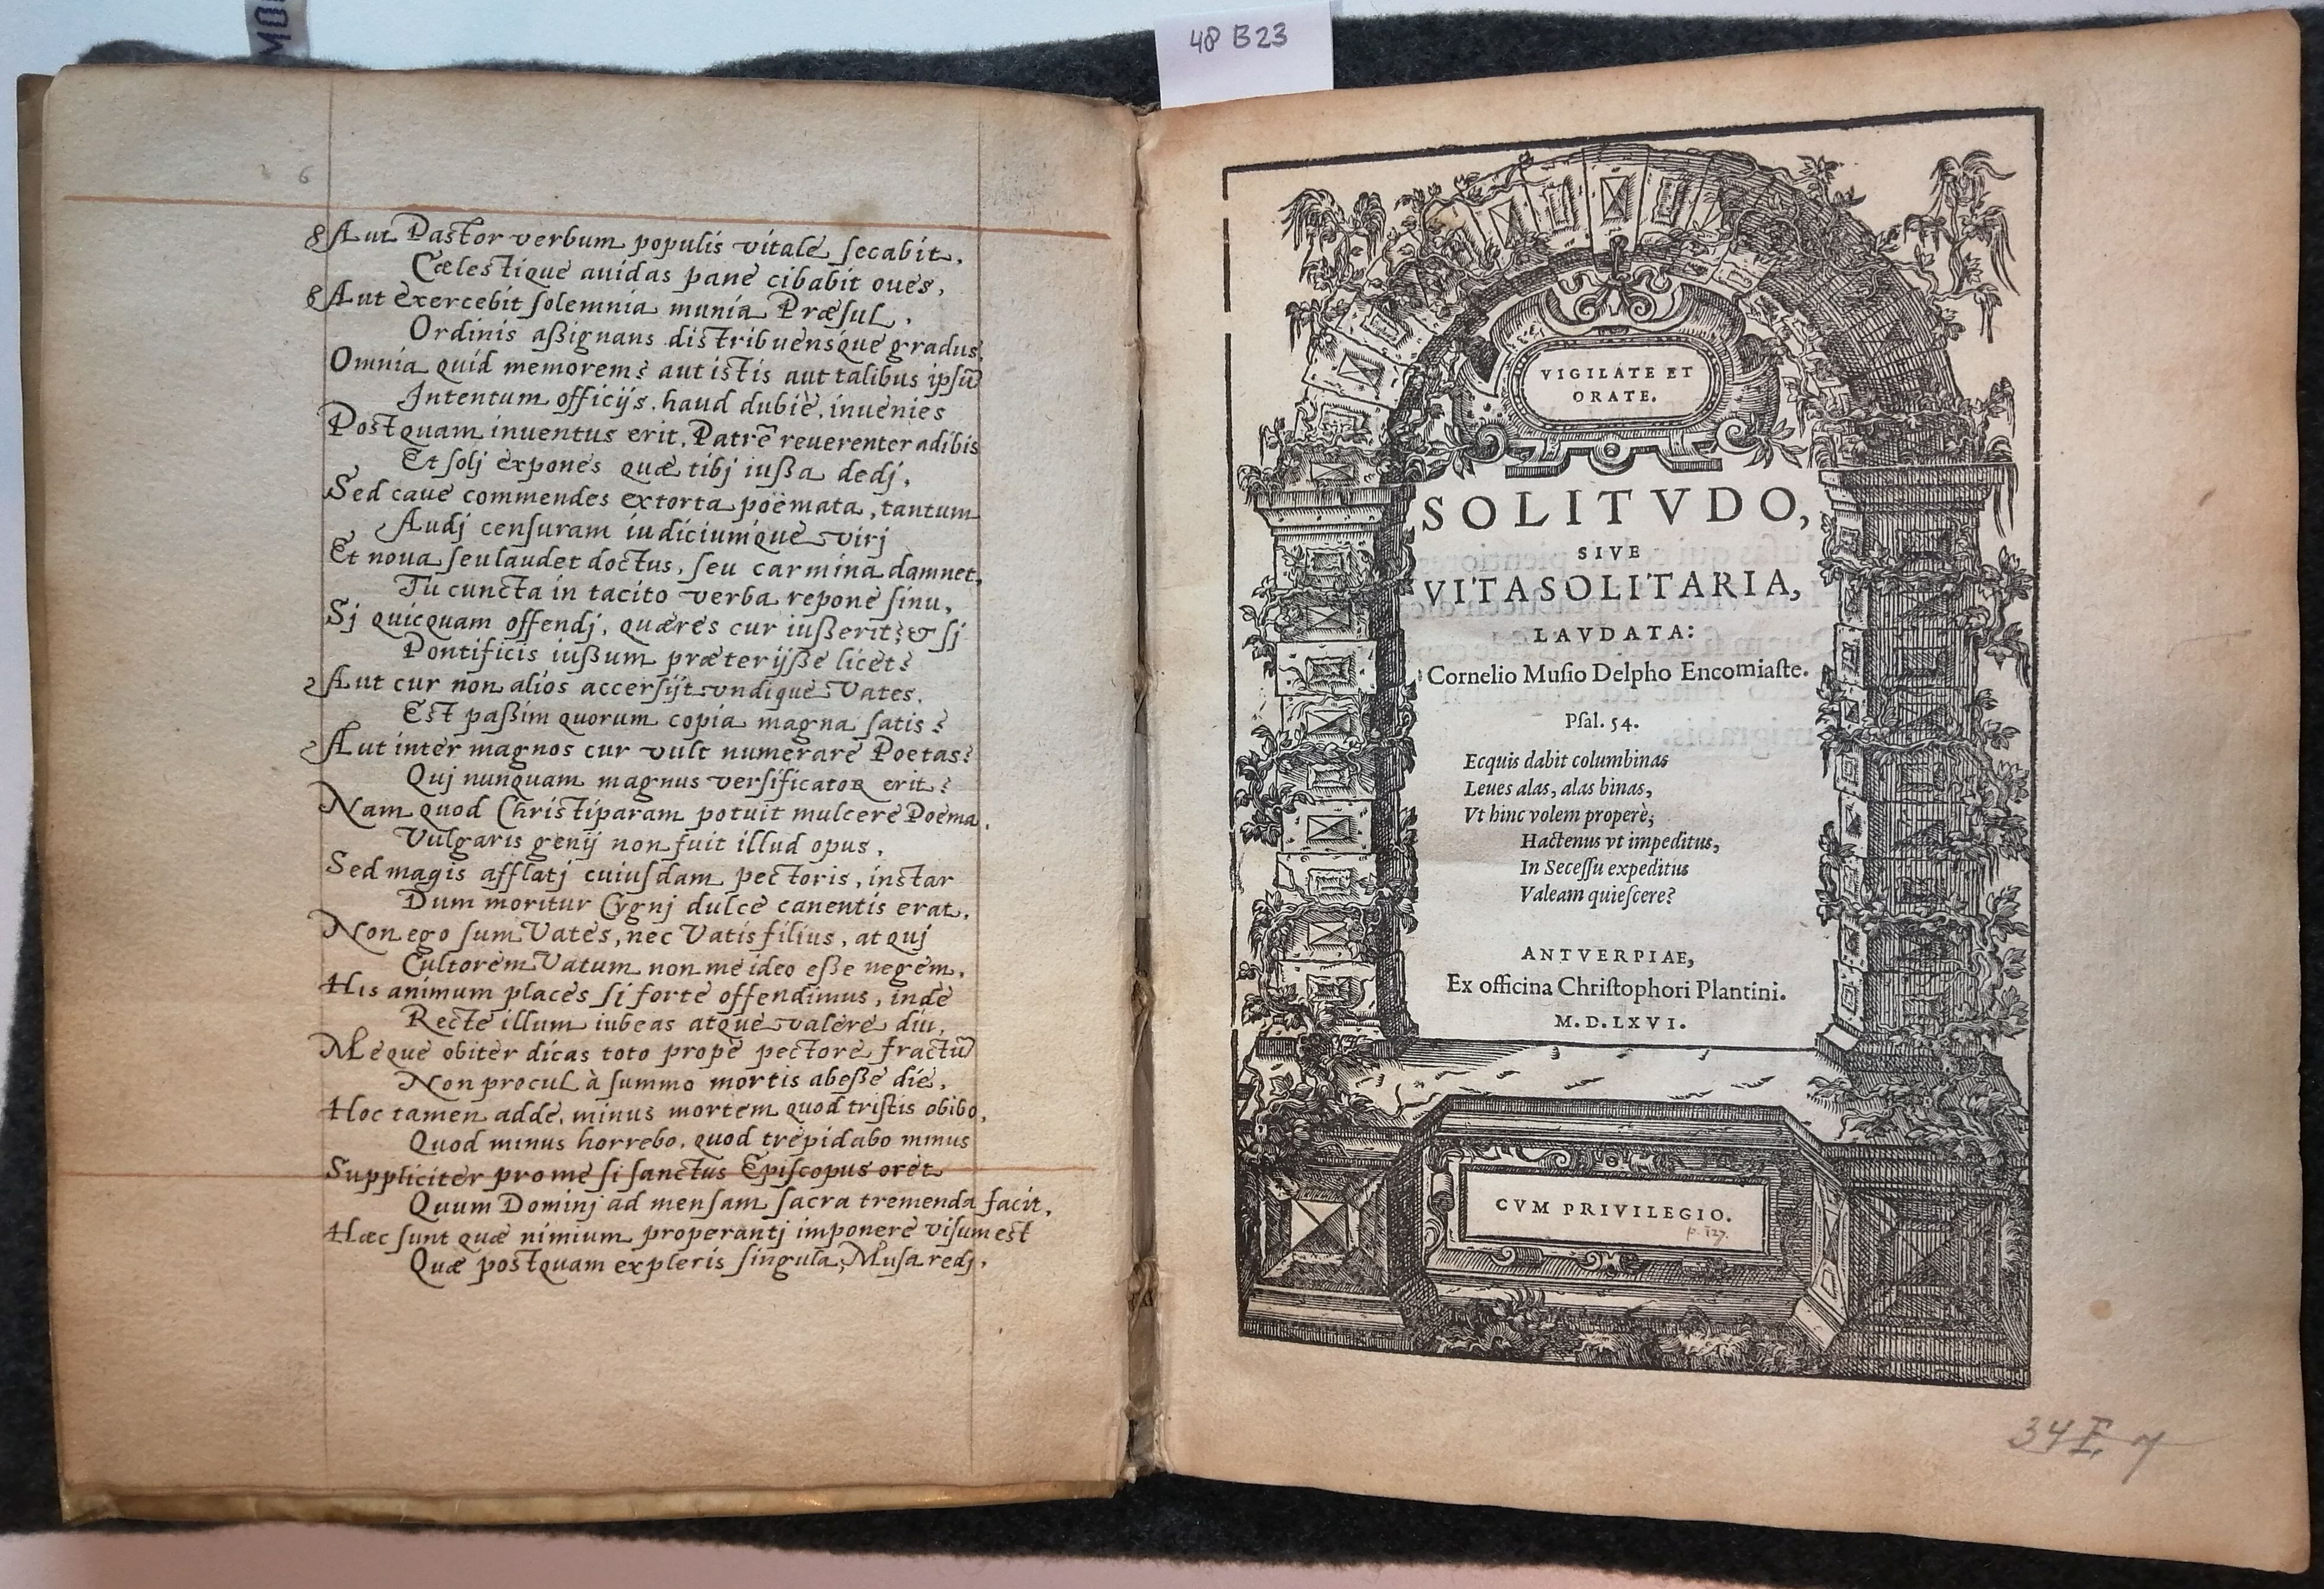 MO
48 B23
6
Aut Pastor verbum populis vitale secabit,
Cælestique auidas pane cibabit oues,
Aut exercebit solemnia munia Præsul,
Ordinis aßignans distribuensque gradus,
Omnia quid memorem? aut istis aut talibus ipsũ
Intentum officijs, haud dubiè, inuenies
Postquam inuentus erit, Patrẽ reuerenter adibis
Et solj expones quæ tibj iußa dedj,
Sed caue commendes extorta poëmata, tantum
Audj censuram iudiciumque virj
Et noua seu laudet doctus, seu carmina damnet,
Tu cuncta in tacito verba repone sinu,
Sj quicquam offendj, quæres cur iußerit? & sj
Pontificis iußum præterijße licet?
Aut cur non alios accersijt vndique Vates,
Est paßim quorum copia magna satis?
Aut inter magnos cur vult numerare Poetas?
Quj nunquam magnus versificator erit?
Nam quod Christiparam potuit mulcere Poëma,
Vulgaris genij non fuit illud opus,
Sed magis afflatj cuiusdam pectoris, instar
Dum moritur Cygnj dulce canentis erat,
Non ego sum Vates, nec Vatis filius, at quj
Cultorem Vatum non me ideo eße negem,
His animum places si forte offendimus, inde
Recte illum iubeas atque valere diu,
Meque obiter dicas toto prope pectore fractũ
Non procul à summo mortis abeße die,
Hoc tamen adde, minus mortem quod tristis obibo,
Quod minus horrebo, quod trepidabo minus
Suppliciter pro me si sanctus Episcopus oret
Quum Dominj ad mensam sacra tremenda facit,
Hæc sunt quæ nimium properantj imponere visum est
Quæ postquam expleris singula, Musa redj,
VIGILATE ET
ORATE.
SOLITVDO,
SIVE
VITA SOLITARIA,
LAVDATA:
Cornelio Musio Delpho Encomiaste.
Psal. 54.
Ecquis dabit columbinas
Leues alas, alas binas,
Vt hinc volem properè;
Hactenus vt impeditus,
In Secessu expeditus
Valeam quiescere?
ANTVERPIAE,
Ex officina Christophori Plantini.
M. D. LXVI.
CVM PRIVILEGIO.
p. 127.
34 E. 7